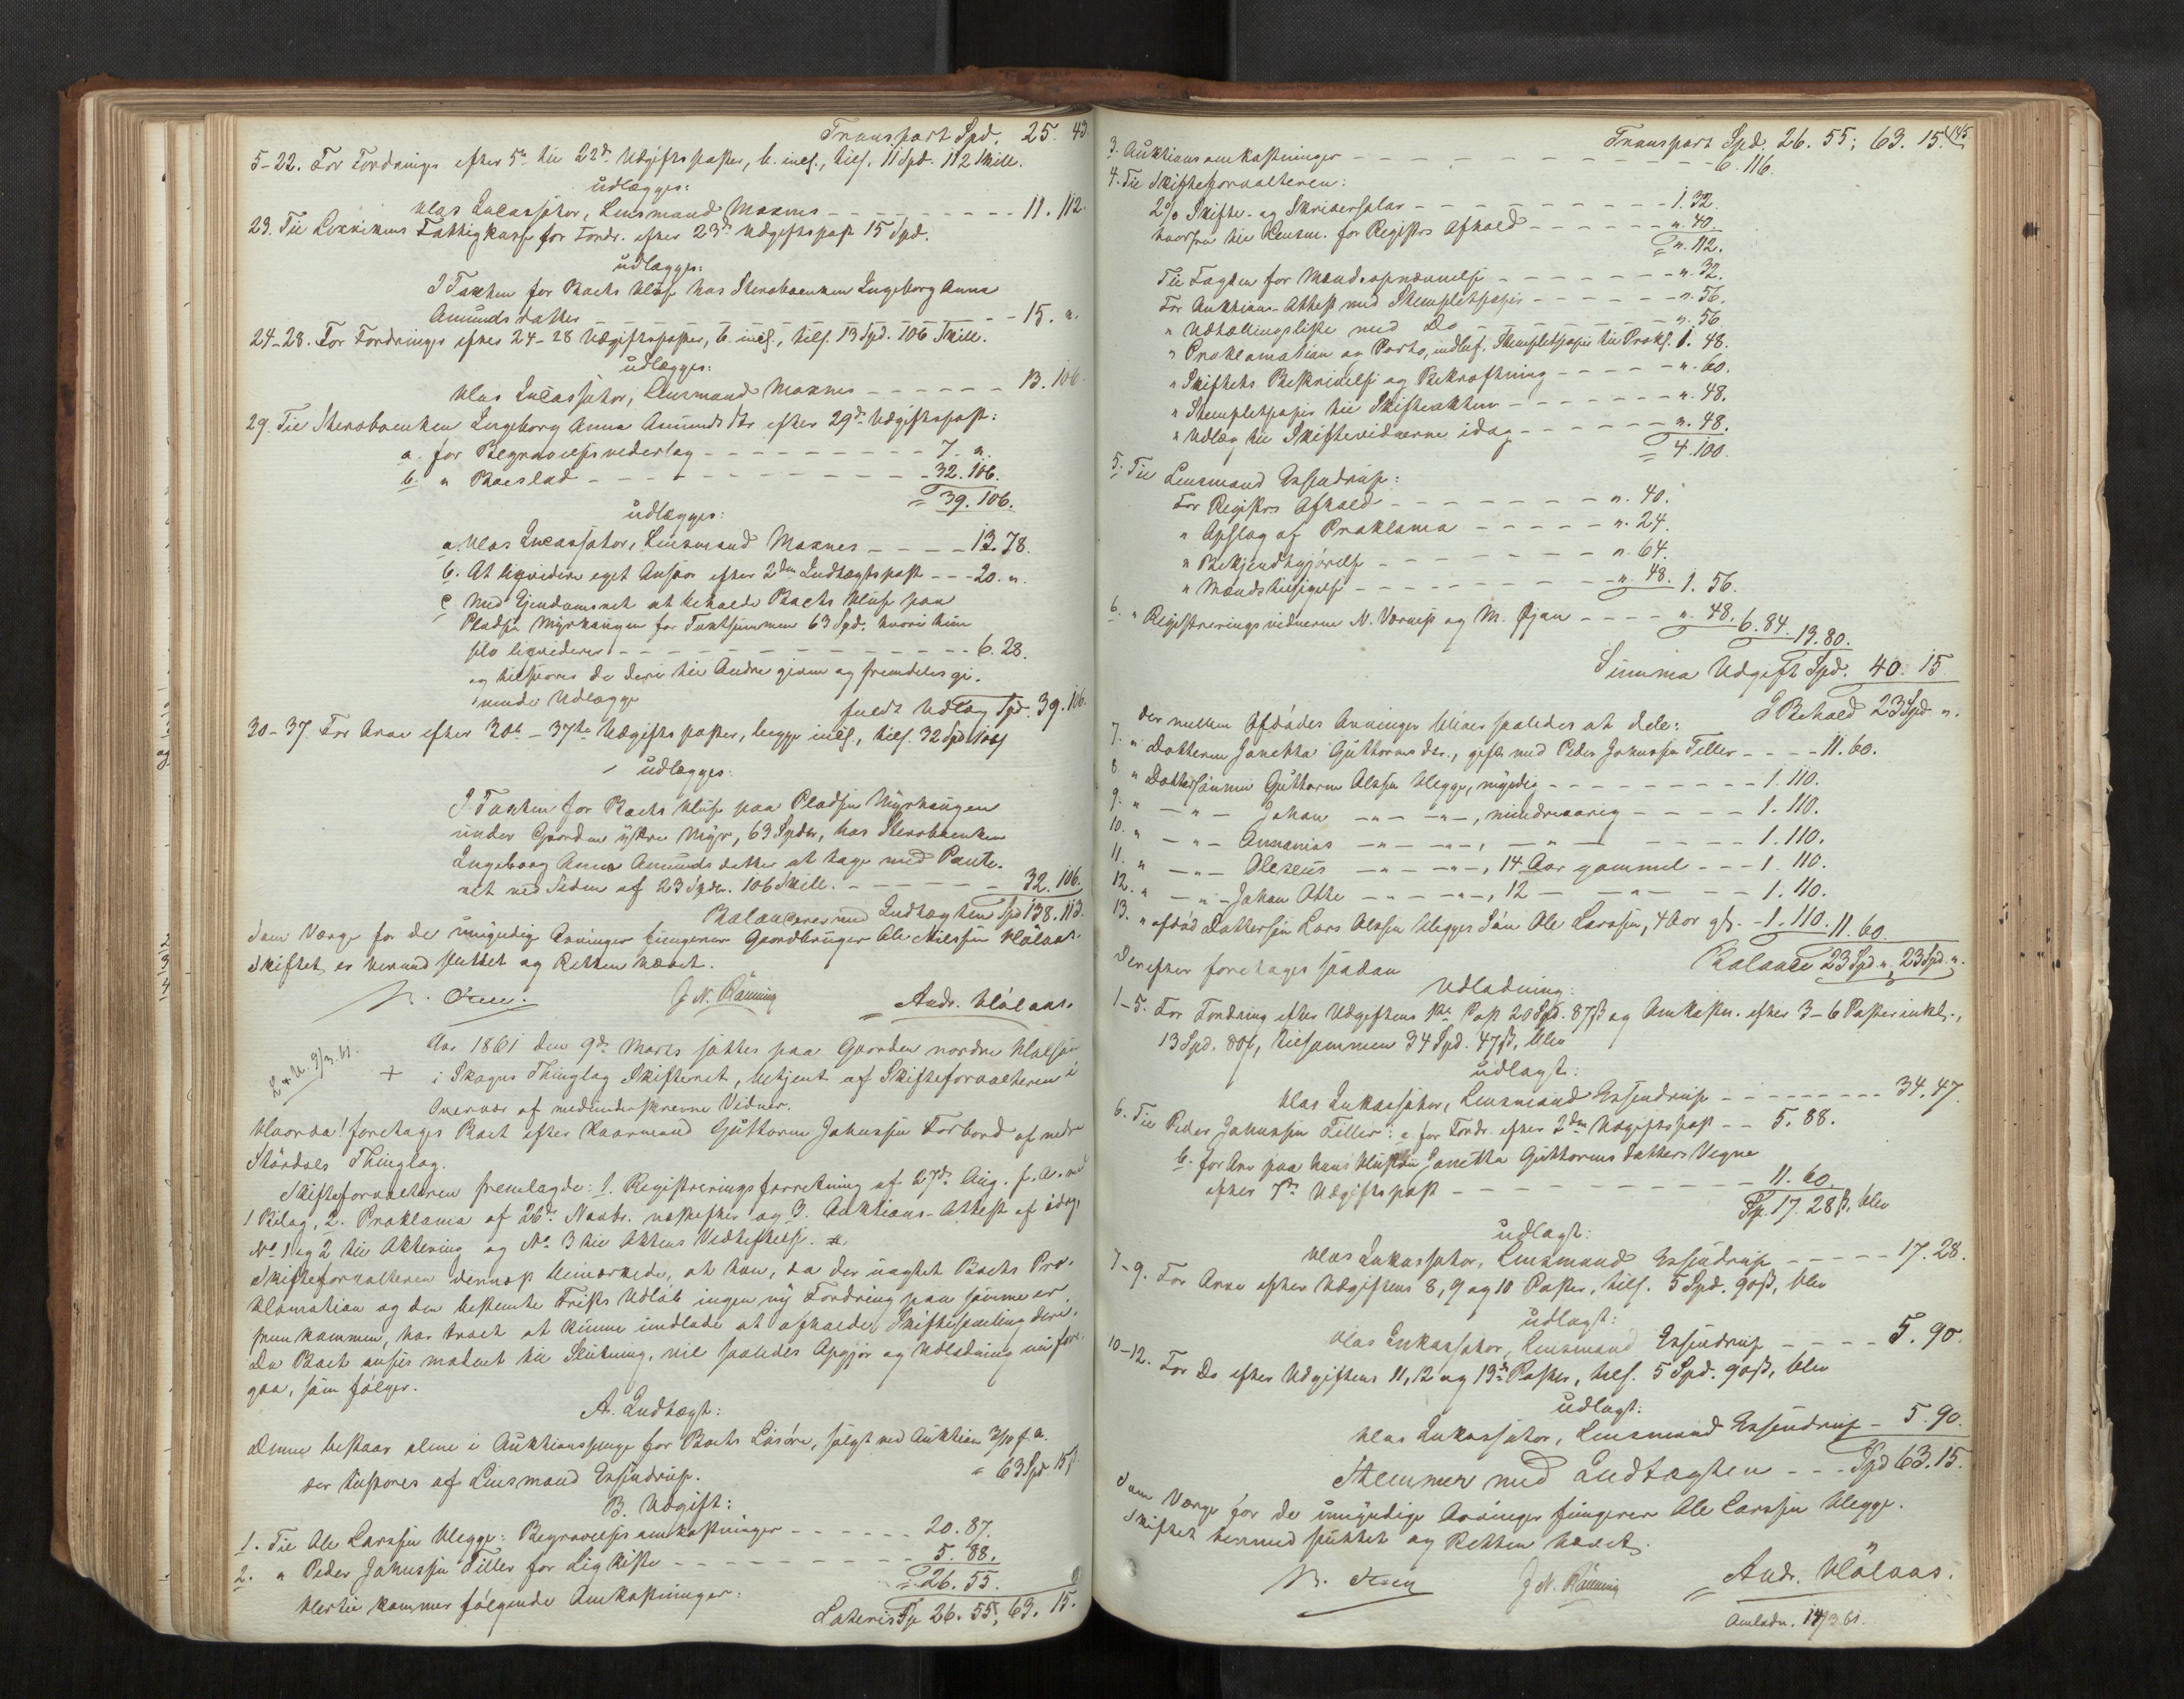 Transport Spd. 25. 43.
5-22. For Fordringer efter 5te til 22de Udgiftsposter, b. incl., tils. 11 Spd. 112 Skill.
udlægges:
hos Incassator, Lensmand Moxnes - - - 11. 112.
23. Til Lexvikens Fattigkasse for Fordr. efter 23de Udgiftspost 15 Spd.
udlægges:
I Taxten for Boets Huse hos Sterboenken Ingeborg Anna
Amundsdatter - - - 15. „
24-28. For Fordringer efter 24-28 Udgiftsposter, b. incl., tils. 13 Spd. 106 Skill.
udlægges:
hos Incassator, Lensmand Moxnes - - - 13. 106.
29. Til Sterboenken Ingeborg Anna Amundsdtr efter 29de Udgiftspost:
a. for Begravelsesvederlag - - - 7. „
b. „ Boeslod - - - 32. 106.
= 39. 106.
udlægges:
a. hos Incassator, Lensmand Moxnes - - - 13. 78.
b. At liqvidere eget Ansvar efter 2den Indtægtspost - - - 20. „
c. Med Eiendomsret at beholde Boets Huse paa
Pladsen Myrhaugen for Taxtsummen 63 Spd. hvori hun
selv liqviderer - - - 6. 28.
og tilsvarer de deri til Andre givne og fremdeles gi-
vende Udlægge
fuldt Udlæg Spd. 39. 106.
30-37. For Arv efter 30te-37te Udgiftsposter, begge incl., tils. 32 Spd 106 ß
udlægges:
I Taxten for Boets Huse paa Pladsen Myrhaugen
under Gaarden ystre Myr, 63 Spdr, hos Sterboenken
Ingeborg Anna Amundsdatter at tage med Pante-
ret ved Siden af 23 Spdr. 106 Skill. - - - 32. 106.
Balancerer med Indtægten Spd 138. 113.
Som Værge for de umyndige Arvinger fungerer Gaardbruger Ole Nilssen Hølaas.
Skiftet er hermed sluttet og Retten hævet.
J. N. Rønning
Andr. Hølaas.
9/3. 61.
+
Aar 1861 den 9de Marts sattes paa Gaarden nordre
i Skogns Thinglag Skifteret, betjent af Skifteforvalteren i
Overvær af medunderskrevne Vidner.
Hvorda! foretages Boet efter Kaarmand Guttorm Johnssen Forbord af nedre
Stördals Thinglag.
Skifteforvalteren fremlagde: 1. Registreringsforretning af 27de Aug. f. A. med
1 Bilag, 2. Proklama af 26de Novbr. næstefter og 3. Auktions-Attest af idag,
No 1 og 2 til Aktering og No 3 til Aktens Vedheftelse.
Skifteforvalteren dernæst bemærkede, at han, da der uagtet Boets Pro-
klamation og den bestemte Frists Udløb ingen ny Fordring paa samme er
fremkommen, har troet at kunne undlade at afholde Skiftesamling deri.
Da Boet ansees modent til Slutning, vil saaledes Opgjør og Udlodning nu fore-
gaa, som følger.
A. Indtægt:
Denne bestaar alene i Auktionspenge for Boets Løsøre, solgt ved Auktion 3/10 f. A.
der tilsvares af Lensmand Essendrup. = 63 Spd 15 ß
B. Udgift:
1. Til Ole Larssen Hegge: Begravelsesomkostninger - - - 20. 87.
2. „ Peder Johnssen Tiller for Ligkiste - - - 5. 88.
= 26. 55.
Hertil kommer følgende Omkostninger:
Lateris Sp 26. 55; 63. 15.
Transport Spd. 26. 55; 63. 15. 145
3. Auktionsomkostninger - - - 6. 116.
4. Til Skifteforvalteren:
2% Skifte- og Skriversalær - - - 1. 32.
hvorfra til Lensm. for Registrs Afhold - - - „. 40.
= „. 112.
Til Fogden for Mændsopnævnelse - - - „. 32.
For Auktions-Attest med Stempletpapir - - - „. 56.
„ Udtællingsliste med Do - - - „. 56
„ Proklamation og Porto, indbef. Stempletpapir til Prokl. 1. 48.
„ Skiftets Beskrivelse og Bekræftning - - - „. 60.
„ Stempletpapir til Skifteakten - - - „. 48.
„ Udlæg til Skiftevidnerne idag - - - „. 48.
= 4. 100.
5. Til Lensmand Essendrup:
For Registrs Afhold - - - „. 40.
„ Opslag af Proklama - - - „. 24.
„ Bekjendtgjørelse - - - „. 64.
„ Mændstilsigelse - - - „. 48. 1. 56.
6. „ Registreringsvidnerne N. Værnes og M. Øjan - - - „. 48. 6. 84. 13. 80.
Summa Udgift Spd. 40. 15
I Behold 23 Spd. „.
der mellem Afdødes Arvinger bliver saaledes at dele:
7. „ Datteren Janetha Guttormsdtr., gift med Peder Johnssen Tiller - - - 11. 60.
8. „ Dattersønnen Guttorm Olssen Hegge, myndig - - - 1. 110.
9. „ — „ — Johan — „ — „ —, mindreaarig - - - 1. 110.
10. „ — „ — Annanias — „ — „ —, — „ — - - - 1. 110.
11. „ — „ — Oleeus — „ — „ —, 14 Aar gammel - - - 1. 110.
12. „ — „ — Johan Otte — „ — „ —, 12 — „ — - - - 1. 110.
13. „ afdød Dattersøn Lars Olssen Hegges Søn Ole Larssen, 4 Aar gl. - 1. 110. 11. 60.
Balance 23 Spd. „, 23 Spd. „.
Derefter foretages saadan
Udlodning:
1-5. For Fordring efter Udgiftens 1ste Post 20 Spd. 87 ß og Omkostn. efter 3-6 Poster inkl.,
13 Spd. 80 ß, tilsammen 34 Spd. 47 ß, blev
udlagt:
hos Inkassator, Lensmand Essendrup - - - 34. 47.
6. Til Peder Johnssen Tiller: a. for Fordr. efter 2den Udgiftspost - - 5. 88.
b. for Arv paa hans Hustru Janetha Guttormsdatters Vegne
efter 7de Udgiftspost - - - 11. 60.
Sp. 17. 28 ß, blev
udlagt:
hos Inkassator, Lensmand Essendrup - - - 17. 28.
7-9. For Arv efter Udgiftens 8, 9 og 10 Poster, tils. 5 Spd. 90 ß, blev
udlagt:
hos Inkassator, Lensmand Essendrup - - - 5. 90.
10-12. For Do efter Udgiftens 11, 12 og 13de Poster, tils. 5 Spd. 90 ß, blev
udlagt:
hos Inkassator, Lensmand Essendrup - 5. 90.
Stemmer med Indtægten - - - Spd 63. 15.
Som Værge for de umyndige Arvinger fungerer Ole Larssen Hegge.
Skiftet hermed sluttet og Retten hævet.
J. N. Rønning
Andr. Hølaas.
14/3 61.